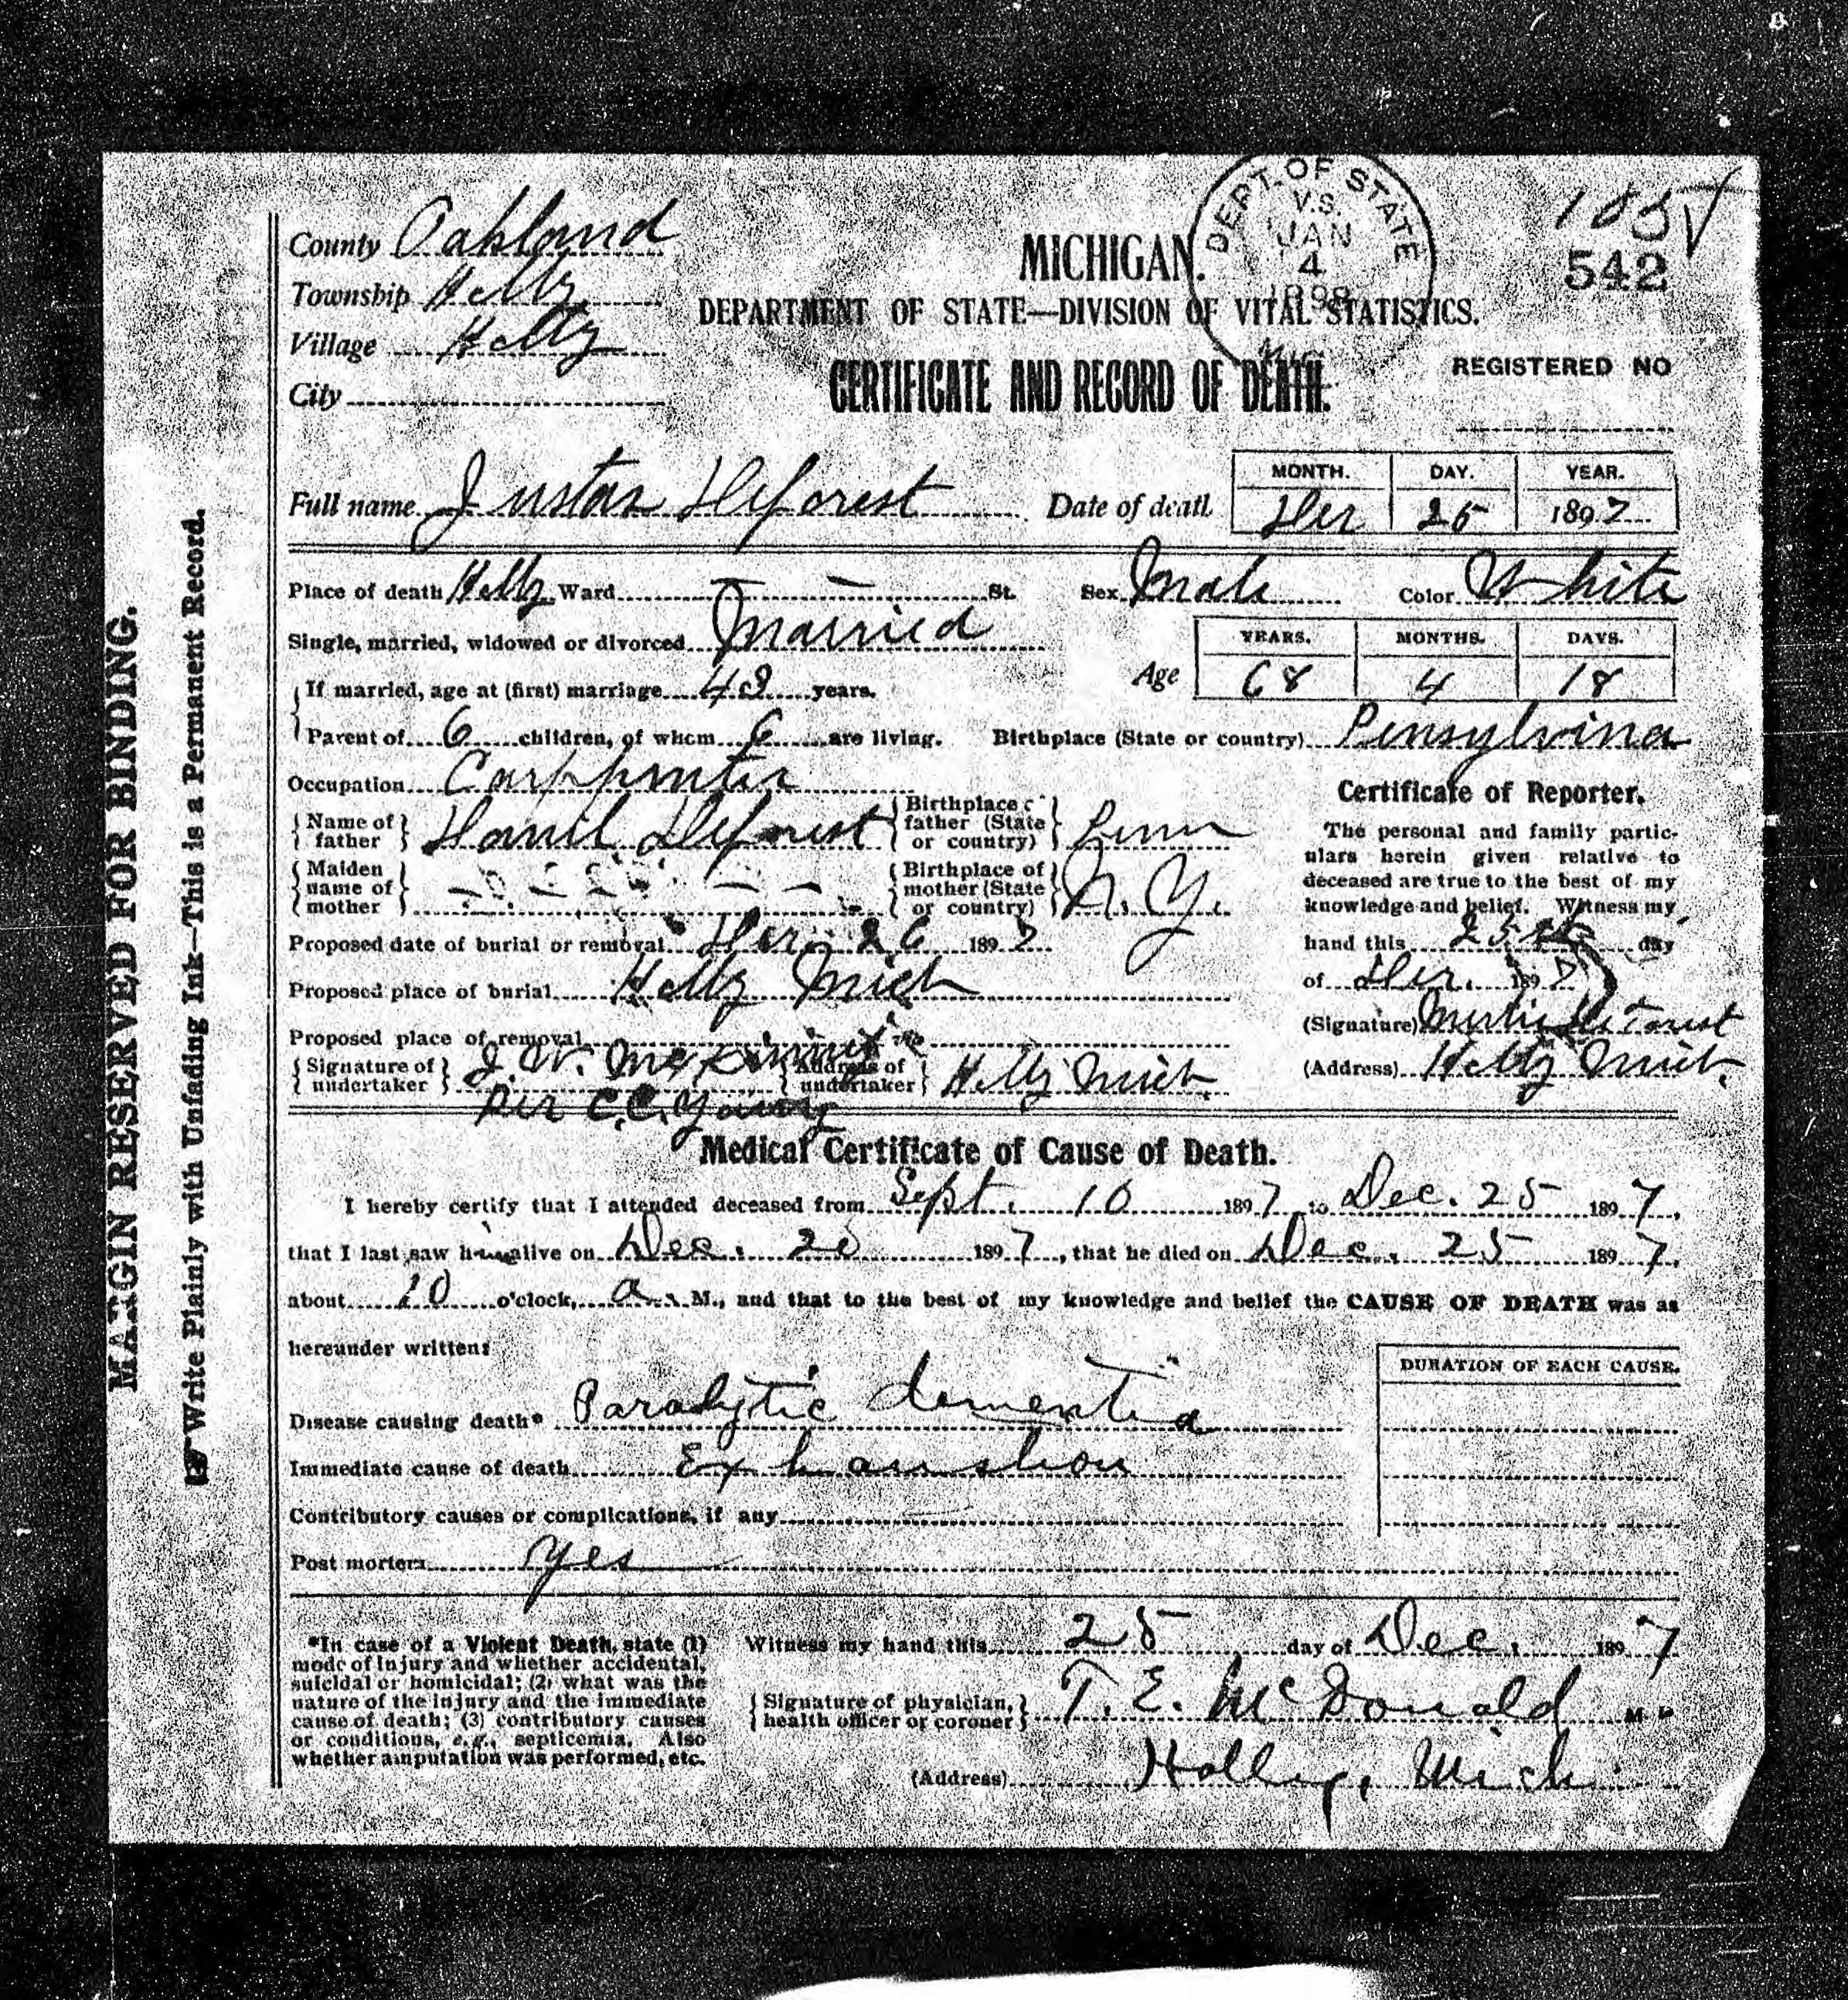 County Oakland
Township Holly
Village Holly
City
DEPT. OF STATE
V.S.
JAN
4
1898
MICH
MICHIGAN.
DEPARTMENT OF STATE—DIVISION OF VITAL STATISTICS.
CERTIFICATE AND RECORD OF DEATH.
542
REGISTERED NO
Full name Justas Deforest
Date of death
MONTH. DAY. YEAR.
Dec 25 1897
Place of death Holly Ward — — St. Sex Male Color White
Single, married, widowed or divorced Married
Age
YEARS. MONTHS. DAYS.
68 4 18
If married, age at (first) marriage years.
Parent of 6 children, of whom 6 are living. Birthplace (State or country) Pensylvina
Occupation Carppenter
Name of father Daniel Deforest Birthplace of father (State or country) Penn
Maiden name of mother Birthplace of mother (State or country) N.Y.
Proposed date of burial or removal Dec. 26 1897
Proposed place of burial Holly Mich
Proposed place of removal
Signature of undertaker J. W. Address of undertaker Holly Mich.
Per C.C. Young
Certificate of Reporter.
The personal and family partic-
ulars herein given relative to
deceased are true to the best of my
knowledge and belief. Witness my
hand this 25th day
of Dec. 1897
(Signature) DeForest
(Address) Holly Mich.
Medical Certificate of Cause of Death.
I hereby certify that I attended deceased from Sept. 10 1897 to Dec. 25 1897,
that I last saw him alive on Dec. 20 1897, that he died on Dec. 25 1897,
about 10 o'clock, a. M., and that to the best of my knowledge and belief the CAUSE OF DEATH was as
hereunder written:
DURATION OF EACH CAUSE.
Disease causing death* Paralytic dementia
Immediate cause of death Exhaustion
Contributory causes or complications, if any
Post mortem yes
*In case of a Violent Death, state (1)
mode of injury and whether accidental,
suicidal or homicidal; (2) what was the
nature of the injury and the immediate
cause of death; (3) contributory causes
or conditions, e.g., septicemia. Also
whether amputation was performed, etc.
Witness my hand this 25 day of Dec. 1897
Signature of physician, health officer or coroner T. E. McDonald M D
(Address) Holly, Mich.
MARGIN RESERVED FOR BINDING.
Write Plainly with Unfading Ink—This is a Permanent Record.